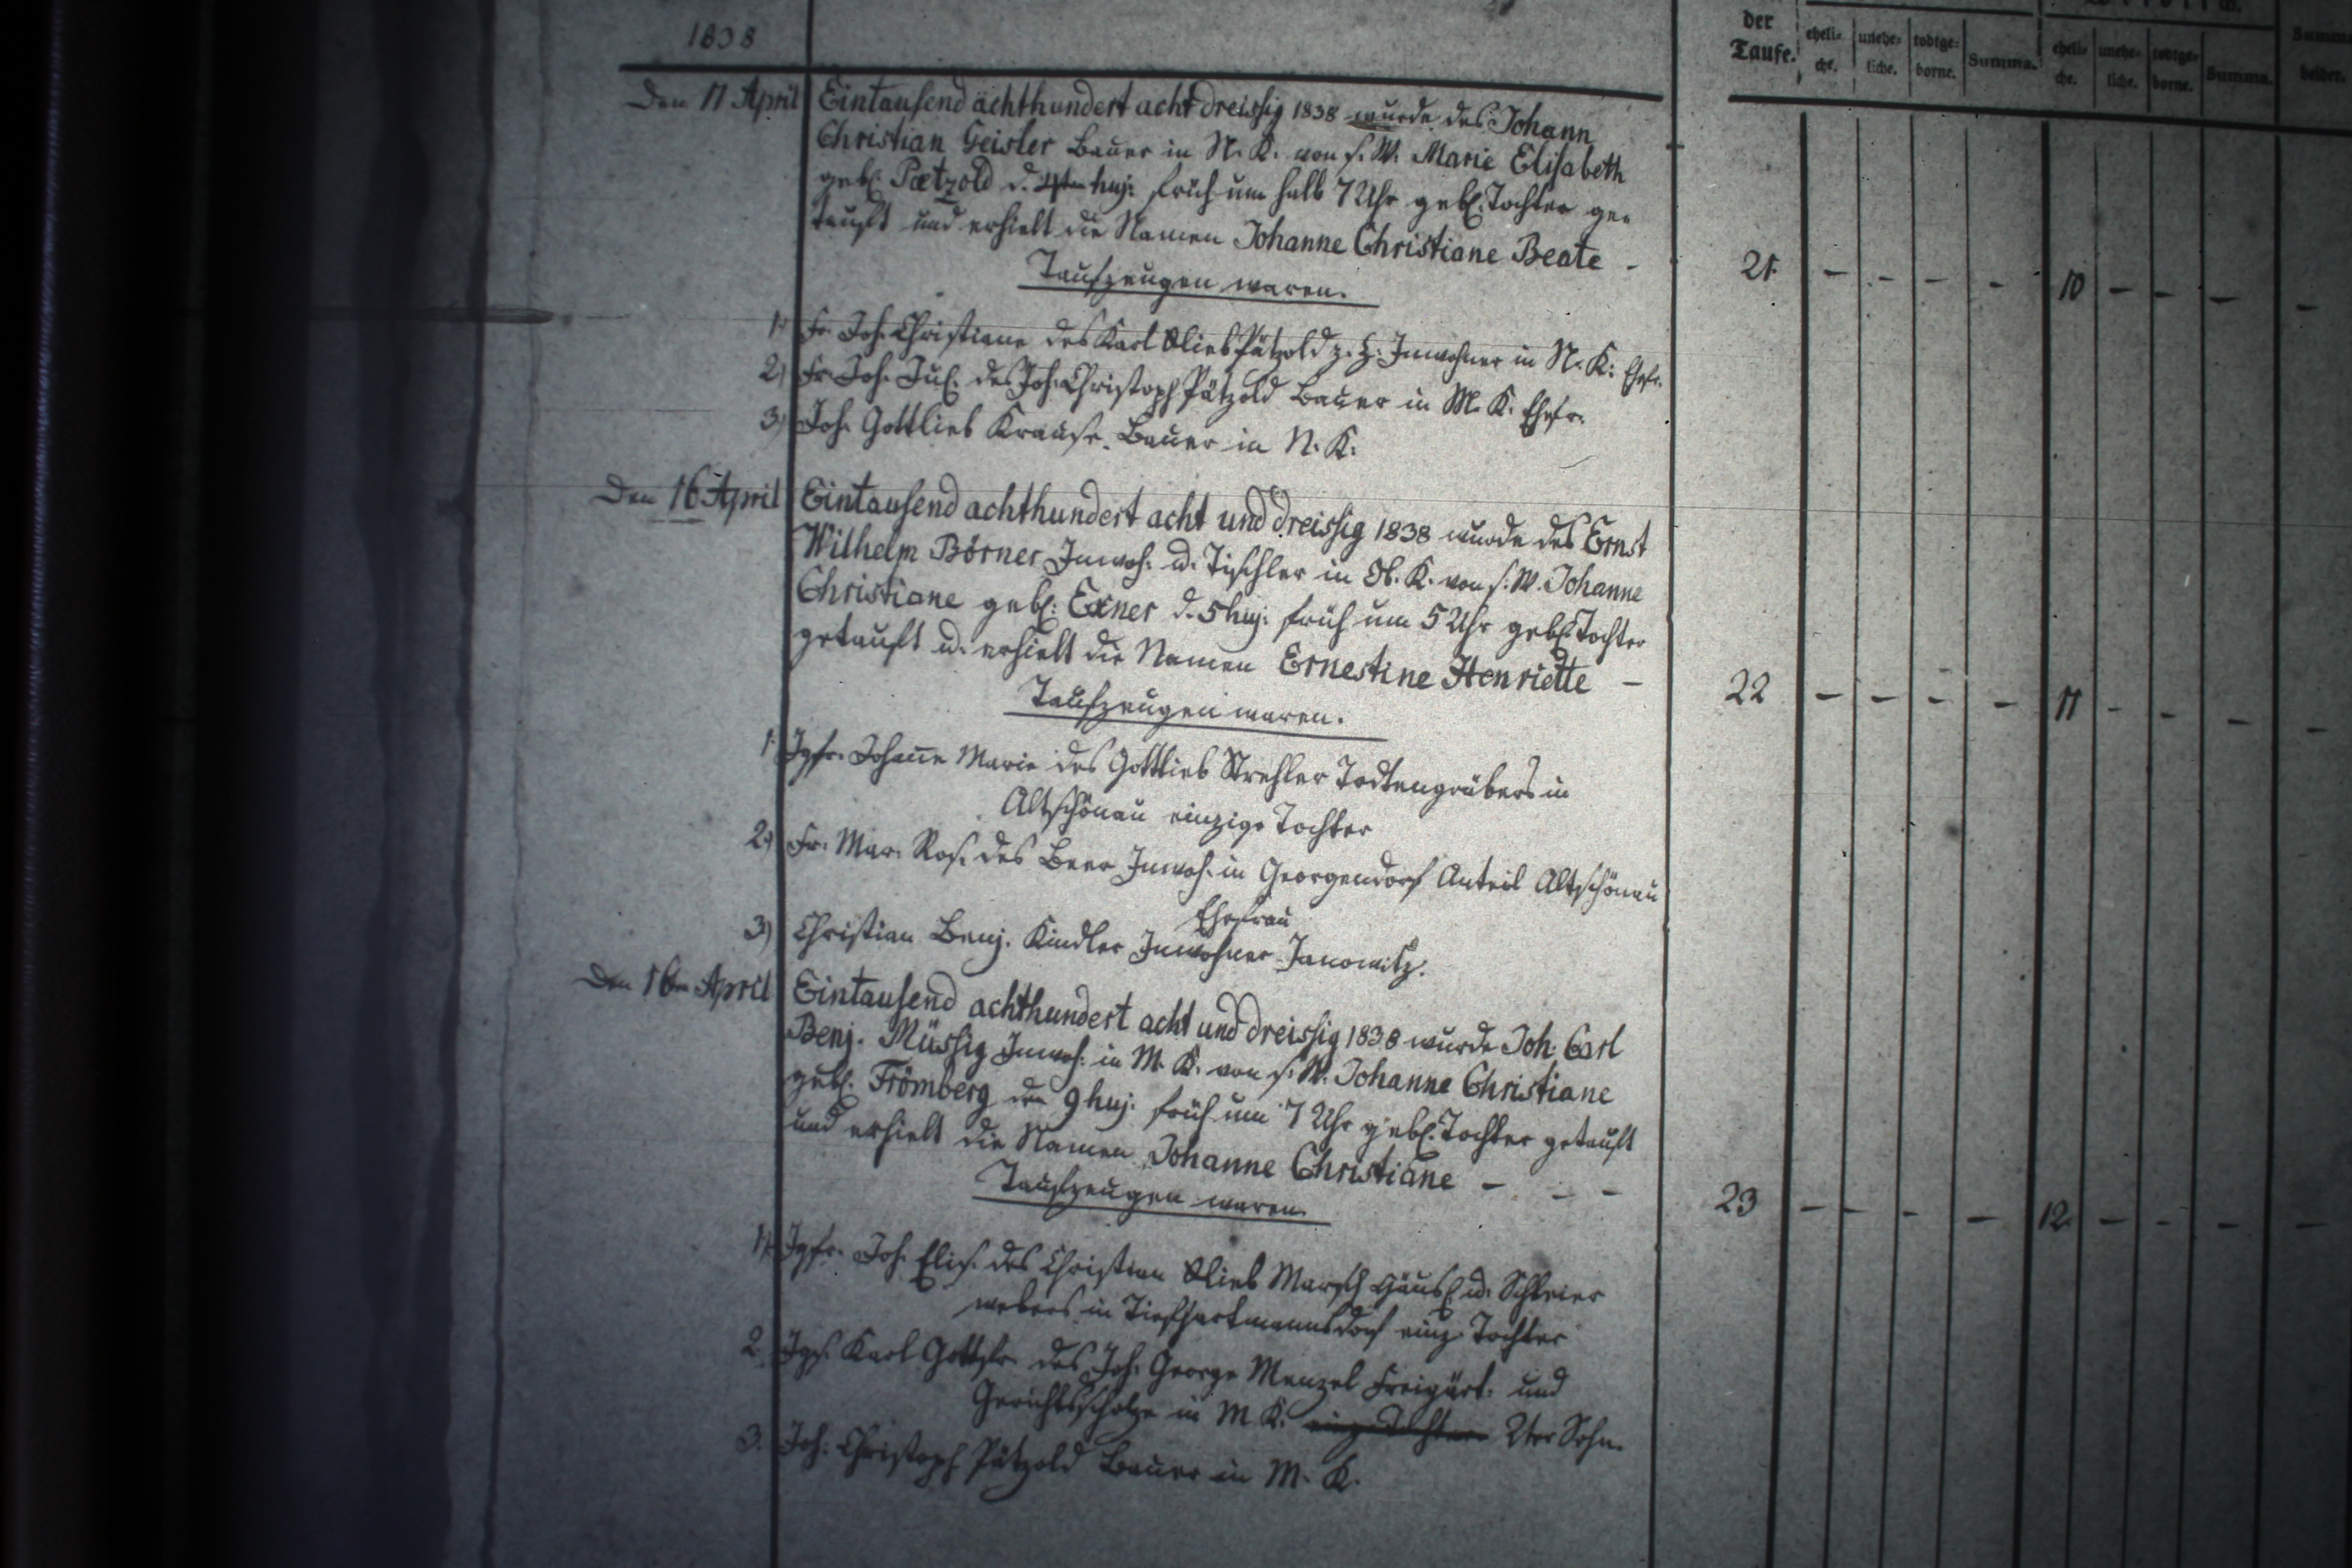 1838
der
Taufe.
eheli=
che.
unehe=
liche.
todtge=
borne.
Summa.
eheli=
che.
unehe=
liche.
todtge=
borne.
Summa.
Summa
beider.
Den 11 April Eintausend achthundert acht dreissig 1838 wurde des Johann
Christian Geisler Bauer in N. K. von s. W. Marie Elisabeth
geb. Paetzold d. 4ten huj: früh um halb 7 Uhr geb. Tochter ge=
tauft und erhielt die Namen Johanne Christiane Beate -
21. - - - - 10 - - - -
Taufzeugen waren.
1. Fr. Joh. Christiane des Karl Glieb Pätzold z. Z. Inwohner in N. K. Ehefr.
2) Fr. Joh. Jul. des Joh. Christoph Pätzold Bauer in M. K. Ehefr.
3) Joh. Gottlieb Krause. Bauer in N. K.
Den 16 April Eintausend achthundert acht und dreissig 1838 wurde des Ernst
Wilhelm Börner Inwoh. u. Tischler in Ob. K. von s. W. Johanne
Christiane geb. Exner d. 5 huj. früh um 5 Uhr geb. Tochter
getauft u. erhielt die Namen Ernestine Henriette -
22 - - - - 11 - - - -
Taufzeugen waren.
1. Jgfr. Johanne Marie des Gottlieb Strehler Todtengräbers in
Altschönau einzige Tochter
2) Fr. Mar. Ros. des Beer Inwoh. in Georgendorf Anteil Altschönau
Ehefrau
3) Christian Benj. Kindler Inwohner Janowitz.
Den 16ten April Eintausend achthundert acht und dreissig 1838 wurde Joh. Carl
Benj. Müssig Inwoh. in M. K. von s. W. Johanne Christiane
geb. Frömberg den 9 huj. früh um 7 Uhr geb. Tochter getauft
und erhielt die Namen Johanne Christiane - - -
23 - - - - 12. - - - -
Taufzeugen waren.
1. Jgfr. Joh. Elis. des Christian Glieb Marsch Häusl. u. Schleier
webers in Tiefhartmannsdorf einz. Tochter
2. Jgs. Karl Gottfr. des Joh. George Menzel Freigärt. und
Gerichtsscholze in M. K. einz. Tochter 2ter Sohn.
3. Joh. Christoph Pätzold Bauer in M. K.